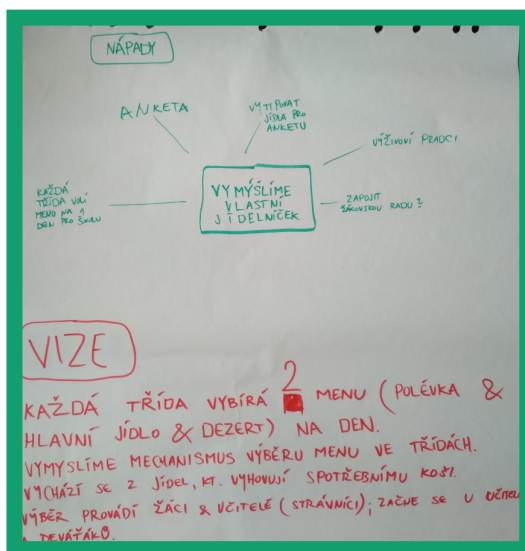 NÁPADY
ANKETA
VYTIPOVAT
JÍDLA PRO
ANKETU
VÝŽIVOVÍ PORADCI
KAŽDÁ
TŘÍDA VOLÍ
MENU NA 1
DEN PRO ŠKOLU
VYMÝŠLÍME
VLASTNÍ
JÍDELNÍČEK
ZAPOJIT
ŽÁKOVSKOU RADU?
VIZE
KAŽDÁ TŘÍDA VYBÍRÁ 2 MENU (POLÉVKA &
HLAVNÍ JÍDLO & DEZERT) NA DEN.
VYMYSLÍME MECHANISMUS VÝBĚRU MENU VE TŘÍDÁCH.
VYCHÁZÍ SE Z JÍDEL, KT. VYHOVUJÍ SPOTŘEBNÍMU KOŠI.
VÝBĚR PROVÁDÍ ŽÁCI & UČITELÉ (STRÁVNÍCI); ZAČNE SE U UČITELŮ
DEVÁŤÁKŮ.